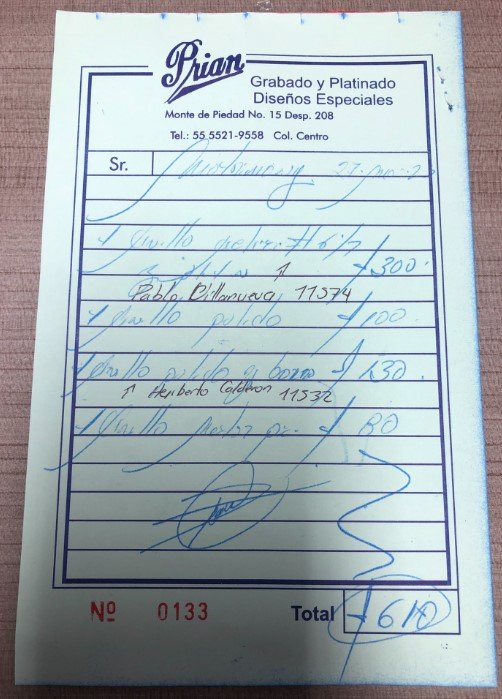 Prian
Grabado y Platinado
Diseños Especiales
Monte de Piedad No. 15 Desp. 208
Tel.: 55 5521-9558 Col. Centro
Sr.
1 Anillo # 6 1/2
$300.
Pablo Billanueva 11574
1 Anillo pulido $100.
1 Anillo pulido y $130.
↑ Heriberto Calderon 11532
1 Anillo $80
Nº 0133 Total $610